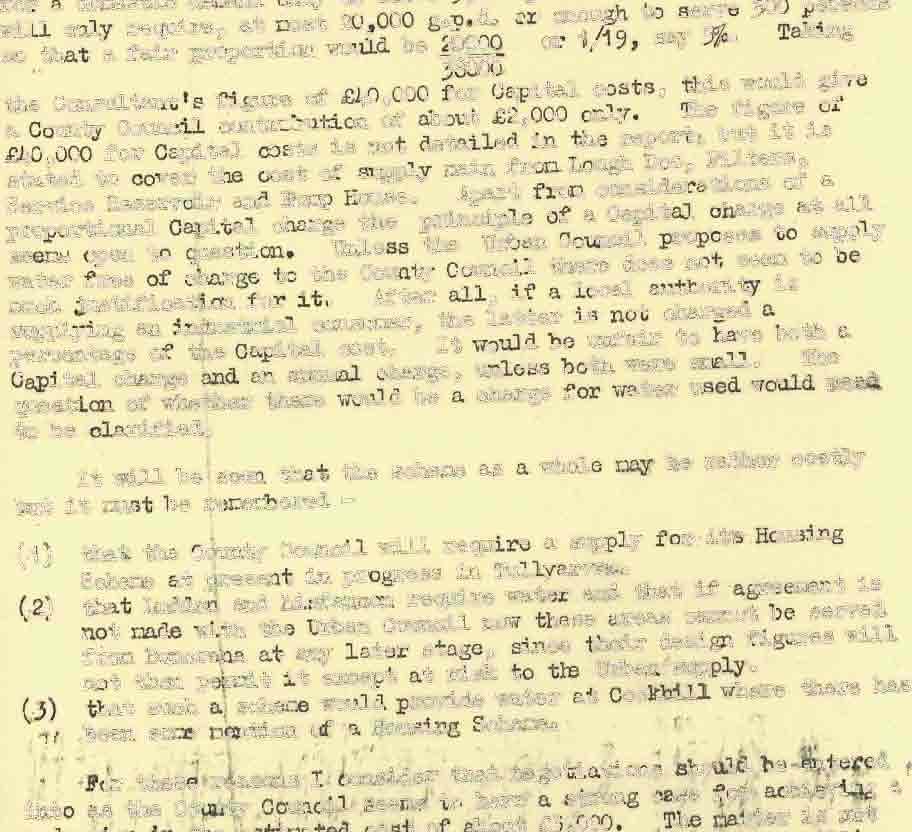 will only require, at most 20,000 g.p.d. or enough to serve 500 persons
so that a fair proportion would be 20000 or 1/19, say 5%. Taking
38000
the Consultant's figure of £40,000 for Capital costs, this would give
a County Council contribution of about £2,000 only. The figure of
£40,000 for Capital costs is not detailed in the report, but it is
stated to cover the cost of supply main from Lough Doo, Filters,
Service Reservoir and Pump House. Apart from considerations of a
proportional Capital charge the principle of a Capital charge at all
seems open to question. Unless the Urban Council proposes to supply
water free of charge to the County Council there does not seem to be
much justification for it. After all, if a local authority is
supplying an industrial consumer, the latter is not charged a
percentage of the Capital cost. It would be unfair to have both a
Capital charge and an annual charge, unless both were small. The
question of whether there would be a charge for water used would need
to be clarified.
It will be seen that the scheme as a whole may be rather costly
but it must be remembered -
(1) that the County Council will require a supply for its Housing
Scheme at present in progress in Tullyarvan.
(2) that and require water and that if agreement is
not made with the Urban Council now these areas cannot be served
from Buncrana at any later stage, since their design figures will
not then permit it except at risk to the Urban supply.
(3) that such a scheme would provide water at Cockhill where there has
been some mention of a Housing Scheme.
For these reasons I consider that negotiations should be entered
into as the County Council seems to have a strong case for achieving a
cost of about £5,000. The matter is not